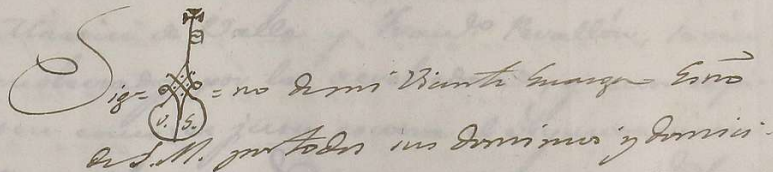 Sig= V. S. =no de mi Vicente Suarez Esno
de S. M. por todos sus dominios y domici-